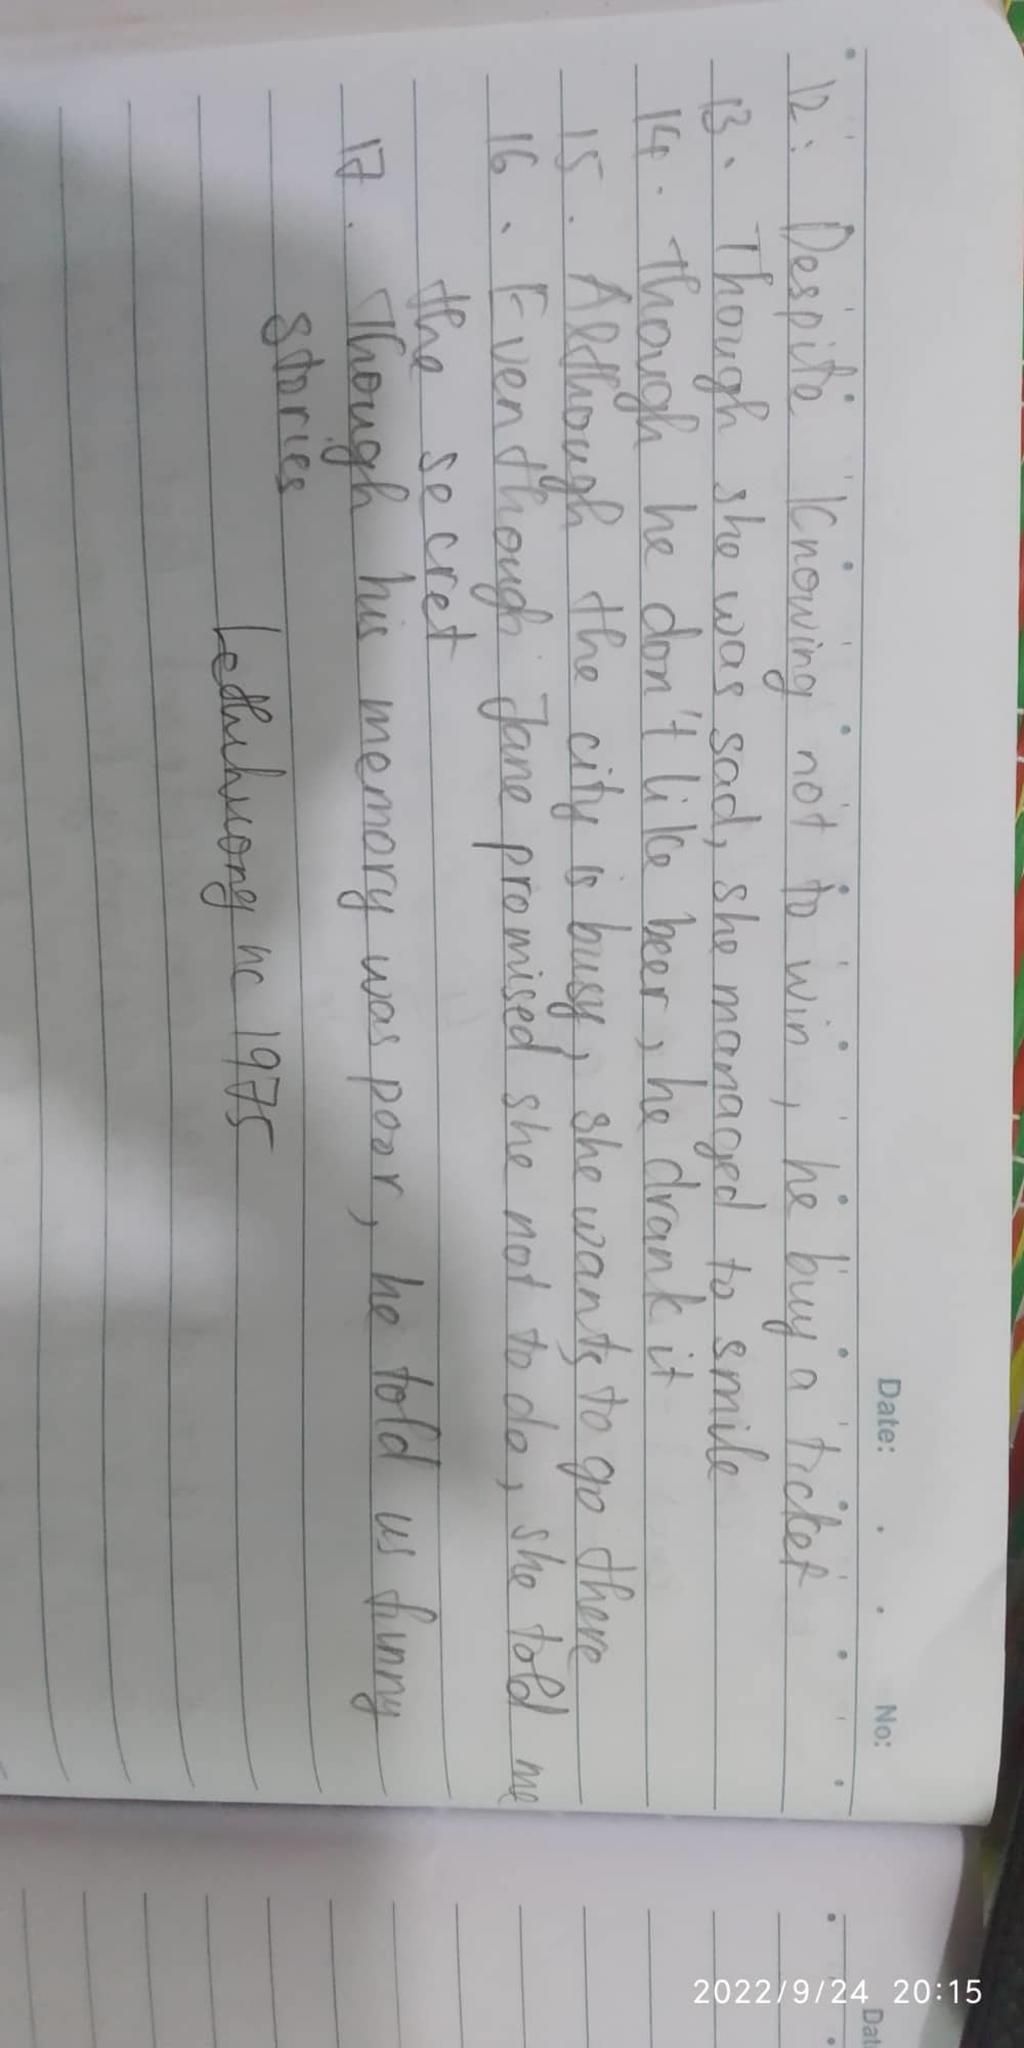 Date: No:
12. Despite knowing not to win, he buy a ticket
13. Though she was sad, she managed to smile
14. though he don't like beer, he drank it
15. Although the city is busy, she wants to go there
16. Even though Jane promised she not to do, she told me
the secret
17. Though his memory was poor, he told us funny
stories
1975
Dat
2022/9/24 20:15